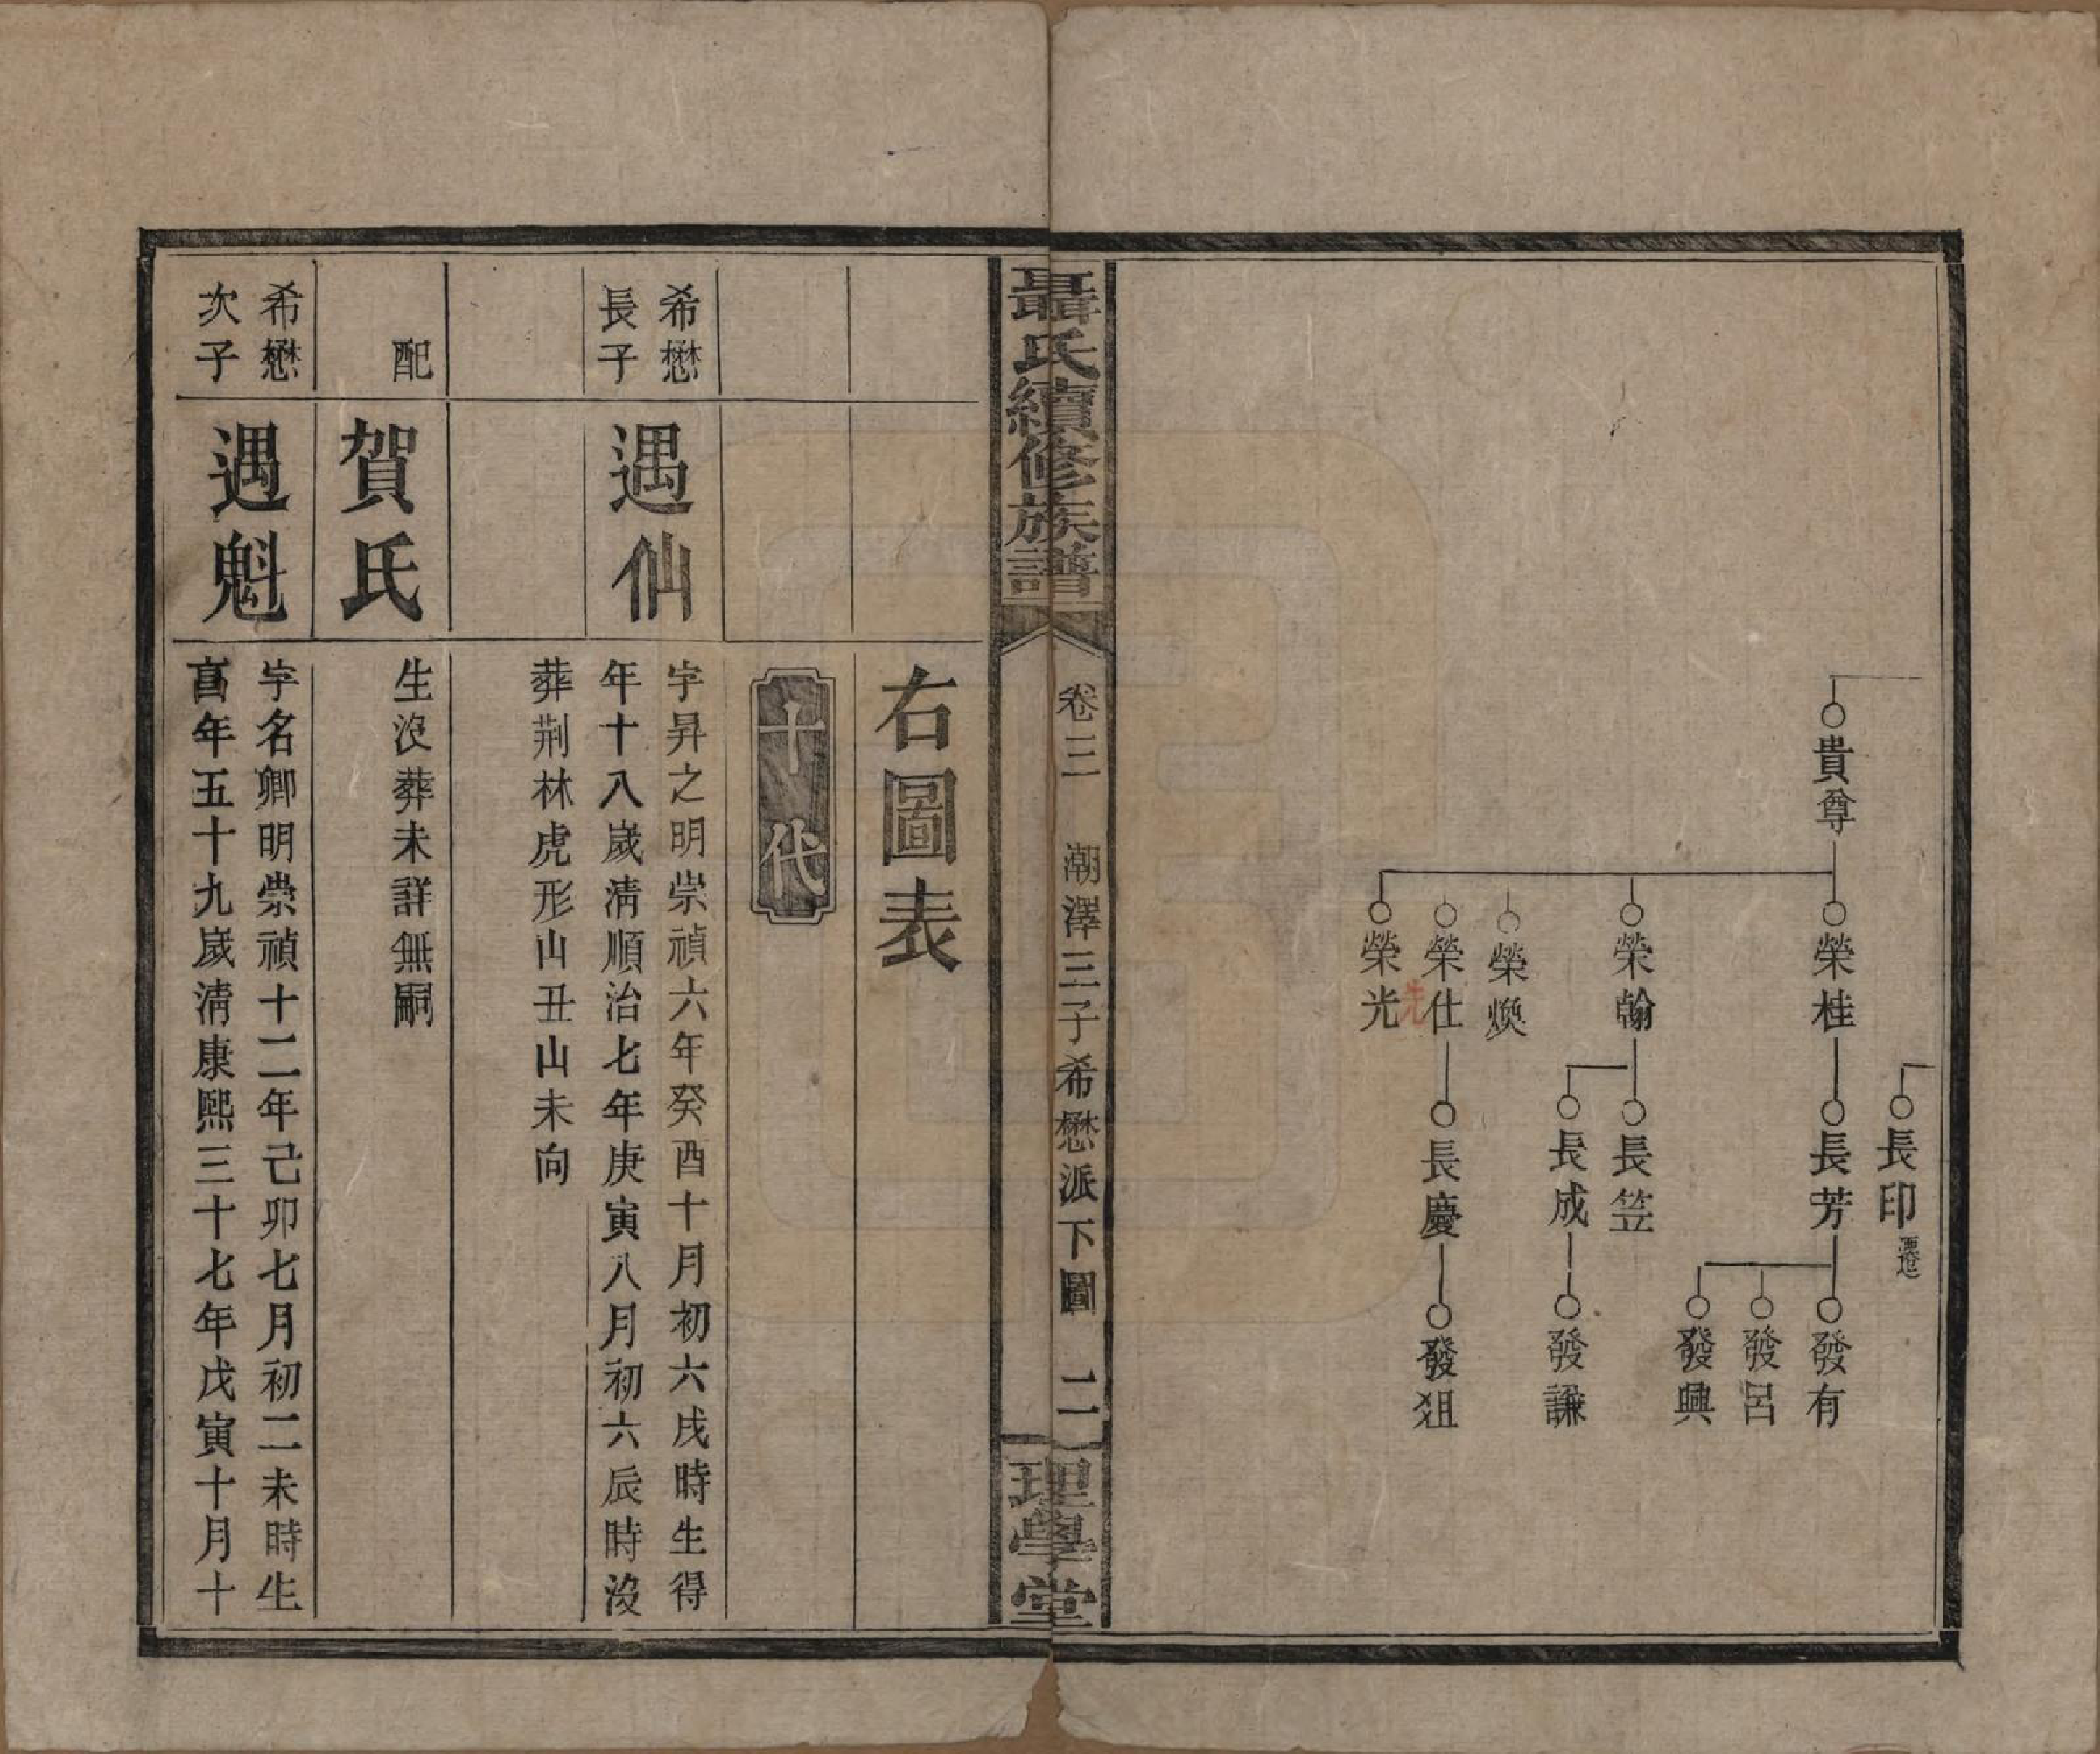 貴尊
榮桂
榮翰
榮煥
榮仕
先
榮光
長印
遷
長芳
長笠
長成
長慶
發有
發呂
發興
發謙
發狙
聶氏續修族譜
卷三　潮澤三子希懋派下圖　二
理學堂
右圖表
十代
希懋
長子
遇仙
字昇之明崇禎六年癸酉十月初六戌時生得
年十八歲清順治七年庚寅八月初六辰時沒
葬荆林虎形山丑山未向
配
賀氏
生沒葬未詳無嗣
希懋
次子
遇魁
字名卿明崇禎十二年己卯七月初二未時生
亯年五十九歲清康熙三十七年戊寅十月十